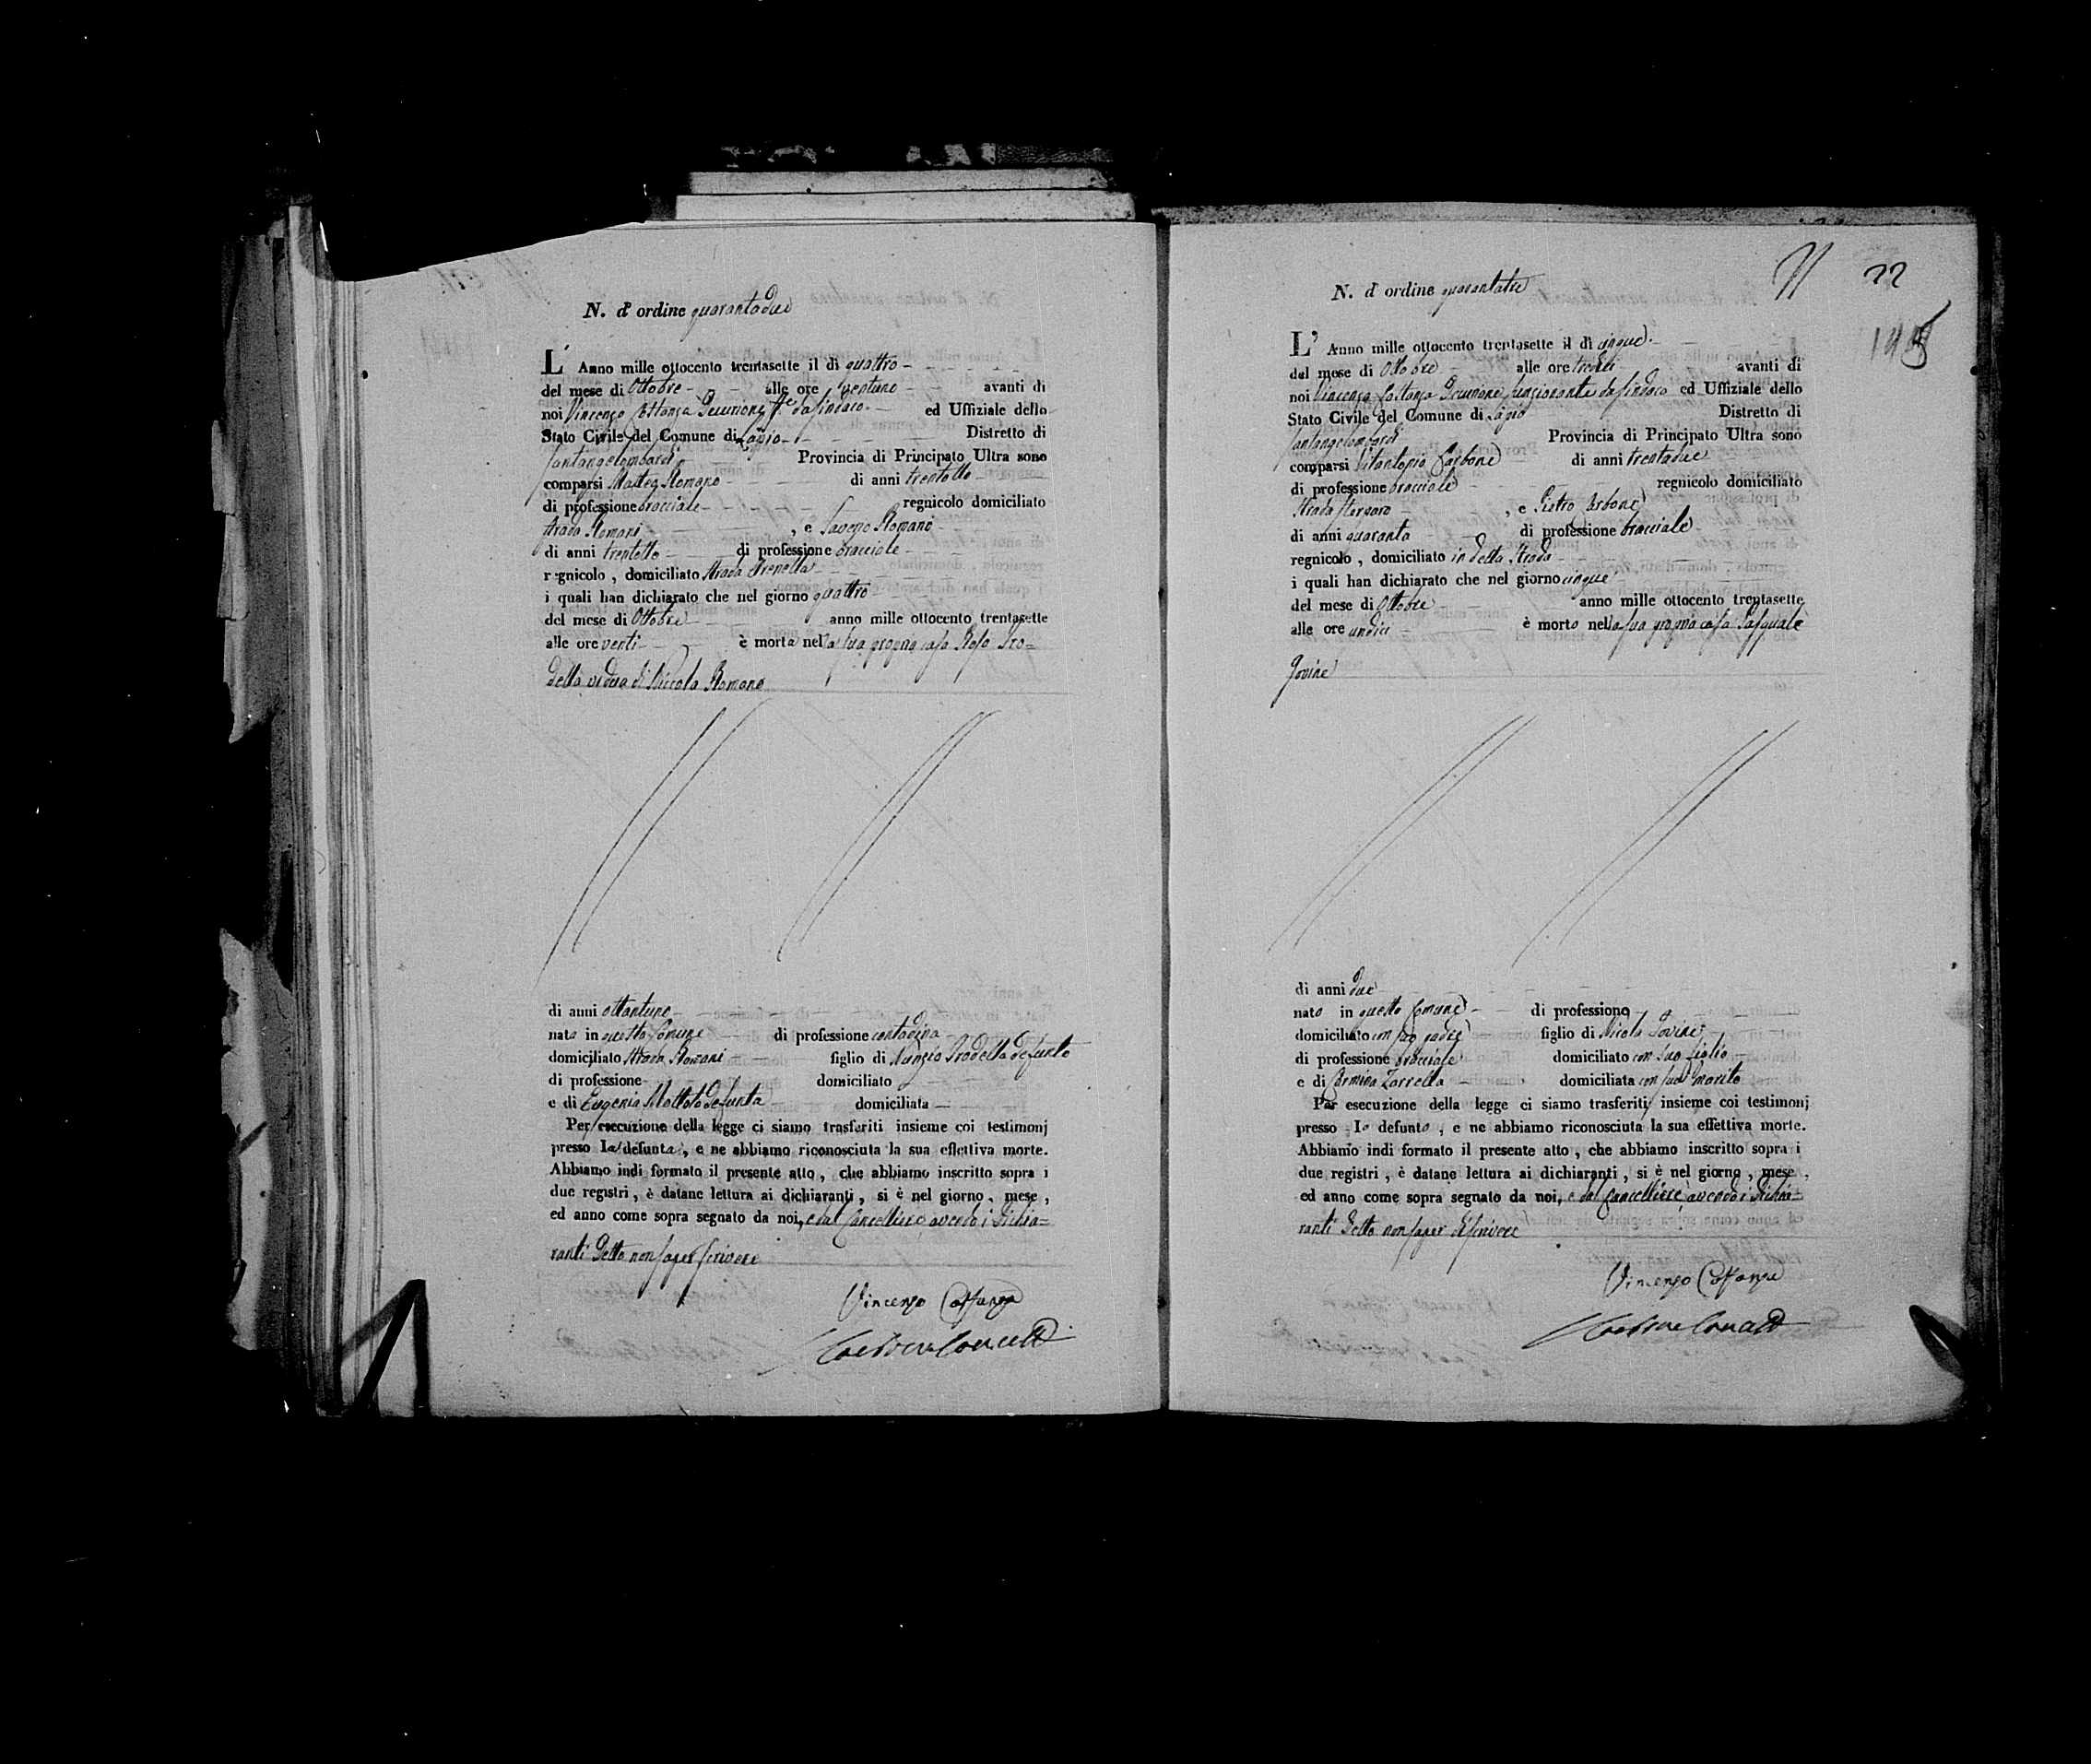 N. d' ordine quarantadue
L' Anno mille ottocento trentasette il dì quattro
del mese di Ottobre alle ore ventuno avanti di
noi Vincenzo Costanza Decurione ff.e da Sindaco ed Uffiziale dello
Stato Civile del Comune di Lapio Distretto di
Santangelombardi Provincia di Principato Ultra sono
comparsi Matteo Romano di anni trentotto
di professione bracciale regnicolo domiciliato
Strada Romani , e Saverio Romano
di anni trentotto di professione bracciale
regnicolo , domiciliato Strada
i quali han dichiarato che nel giorno quattro
del mese di Ottobre anno mille ottocento trentasette
alle ore venti è morta nella sua propria casa Rosa Iro=
della vedova di Niccola Romano
di anni ottantuno
nata in questo Comune di professione contadina
domiciliato Strada Romani figlio di Nunzio Irodella defunto
di professione domiciliato
e di Eugenia defunta domiciliata
Per esecuzione della legge ci siamo trasferiti insieme coi testimonj
presso la defunta , e ne abbiamo riconosciuta la sua effettiva morte.
Abbiamo indi formato il presente atto , che abbiamo inscritto sopra i
due registri , è datane lettura ai dichiaranti , si è nel giorno , mese ,
ed anno come sopra segnato da noi, e dal Cancelliere avendo i dichia=
ranti detto non saper scrivere
Vincenzo Costanza
22
N. d' ordine quarantatre
L' Anno mille ottocento trentasette il dì cinque
del mese di Ottobre alle ore tredici avanti di
noi Vincenzo Costanza Decurione funzionante da Sindaco ed Uffiziale dello
Stato Civile del Comune di Lapio Distretto di
Santangelombardi Provincia di Principato Ultra sono
comparsi Vitantonio Carbone di anni trentadue
di professione bracciale regnicolo domiciliato
Strada , e Pietro Carbone
di anni quaranta di professione bracciale
regnicolo , domiciliato in detta Strada
i quali han dichiarato che nel giorno cinque
del mese di Ottobre anno mille ottocento trentasette
alle ore undici è morto nella sua propria casa Pasquale
Iovine
di anni due
nato in questo Comune di professione
domiciliato con suo padre figlio di Nicola Iovine
di professione bracciale domiciliato con suo figlio
e di Carmina Zarrella domiciliata con suo marito
Per esecuzione della legge ci siamo trasferiti insieme coi testimonj
presso lo defunto , e ne abbiamo riconosciuta la sua effettiva morte.
Abbiamo indi formato il presente atto , che abbiamo inscritto sopra i
due registri , è datane lettura ai dichiaranti , si è nel giorno , mese ,
ed anno come sopra segnato da noi, e dal Cancelliere avendo i dichia=
ranti detto non saper di scrivere
Vincenzo Costanza